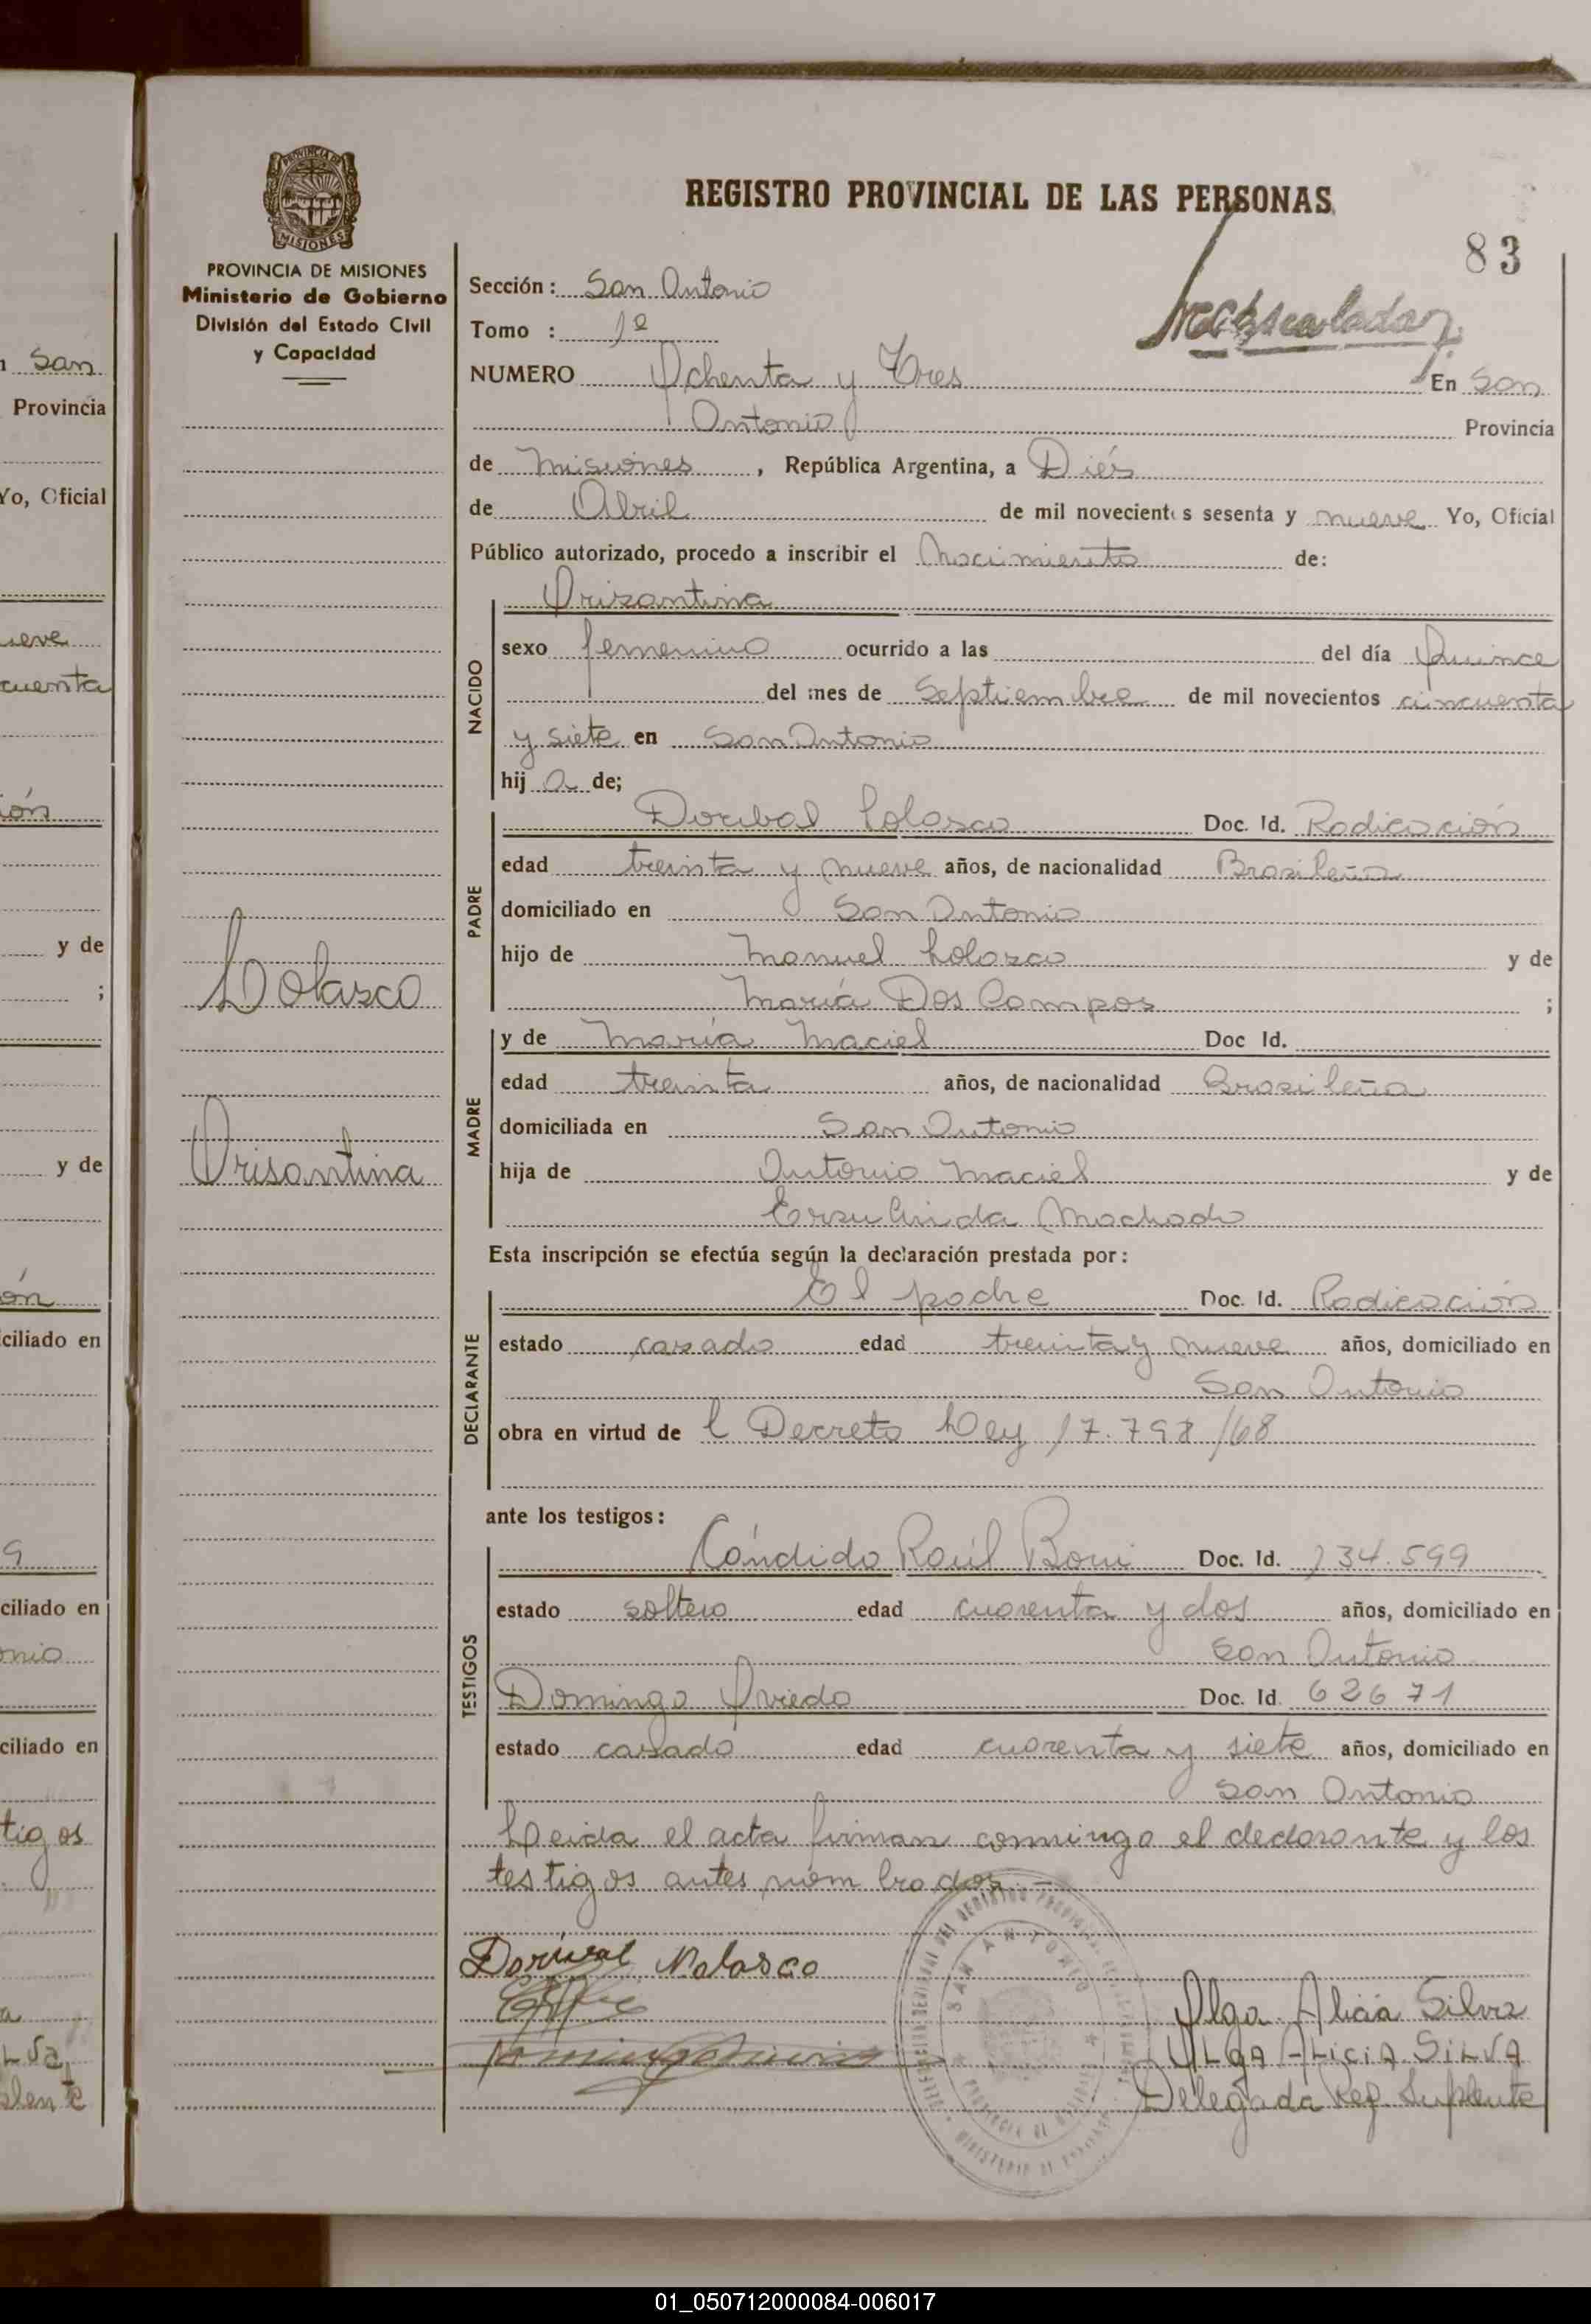 REGISTRO PROVINCIAL DE LAS PERSONAS
83
PROVINCIA DE MISIONES
Ministerio de Gobierno
División del Estado Civil
y Capacidad
Sección: San Antonio
Tomo : 1º
NUMERO Ochenta y Tres En San
Antonio Provincia
de Misiones, República Argentina, a Diés
de Abril de mil novecientos sesenta y nueve Yo, Oficial
Público autorizado, procedo a inscribir el Nacimiento de:
Orizantina
NACIDO
sexo femenino ocurrido a las del día Quince
del mes de Septiembre de mil novecientos cincuenta
y siete en San Antonio
hij a de;
PADRE
Doribal Lolasco Doc. Id. Radicación
edad treinta y nueve años, de nacionalidad Brasileña
domiciliado en San Antonio
hijo de Manuel Lolasco y de
María Dos Campos ;
Lolasco
MADRE
y de María Maciel Doc Id.
edad treinta años, de nacionalidad Brasileña
domiciliada en San Antonio
hija de Antonio Maciel y de
Ersulinda Machado
Orisantina
Esta inscripción se efectúa según la declaración prestada por:
DECLARANTE
El padre Doc. Id. Radicación
estado casado edad treinta y nueve años, domiciliado en
San Antonio
obra en virtud de l Decreto Ley 17.798/68
ante los testigos:
TESTIGOS
Cándido Raúl Boni Doc. Id. 134.599
estado soltero edad cuarenta y dos años, domiciliado en
San Antonio
Domingo Oviedo Doc. Id. 62671
estado casado edad cuarenta y siete años, domiciliado en
San Antonio
Leida el acta firman conmingo el declarante y los
testigos antes nombrados.—
Dorival Nolasco
Olga Alicia Silva
OLGA ALICIA SILVA
Delegada Rep. Suplente
SAN ANTONIO
San
Provincia
Yo, Oficial
y de
;
y de
ciliado en
ciliado en
ciliado en
tigos
01_050712000084-006017